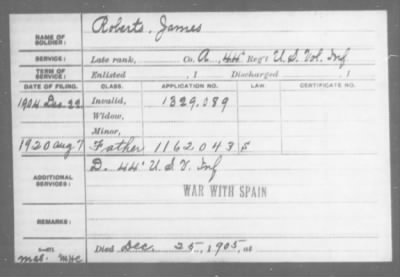 NAME OF SOLDIER: Roberts, James
SERVICE: Late rank, Co. A, 44" Reg't U.S. Vol. Inf
TERM OF SERVICE: Enlisted , 1 Discharged , 1
DATE OF FILING. CLASS. APPLICATION NO. LAW. CERTIFICATE NO.
1904 Dec. 22 Invalid, 1329,089
Widow,
Minor,
1920 Aug 7 Father 1162043 S
ADDITIONAL SERVICES: D. 44" U.S.V. Inf
WAR WITH SPAIN
REMARKS:
Died Dec. 25, 1905, at